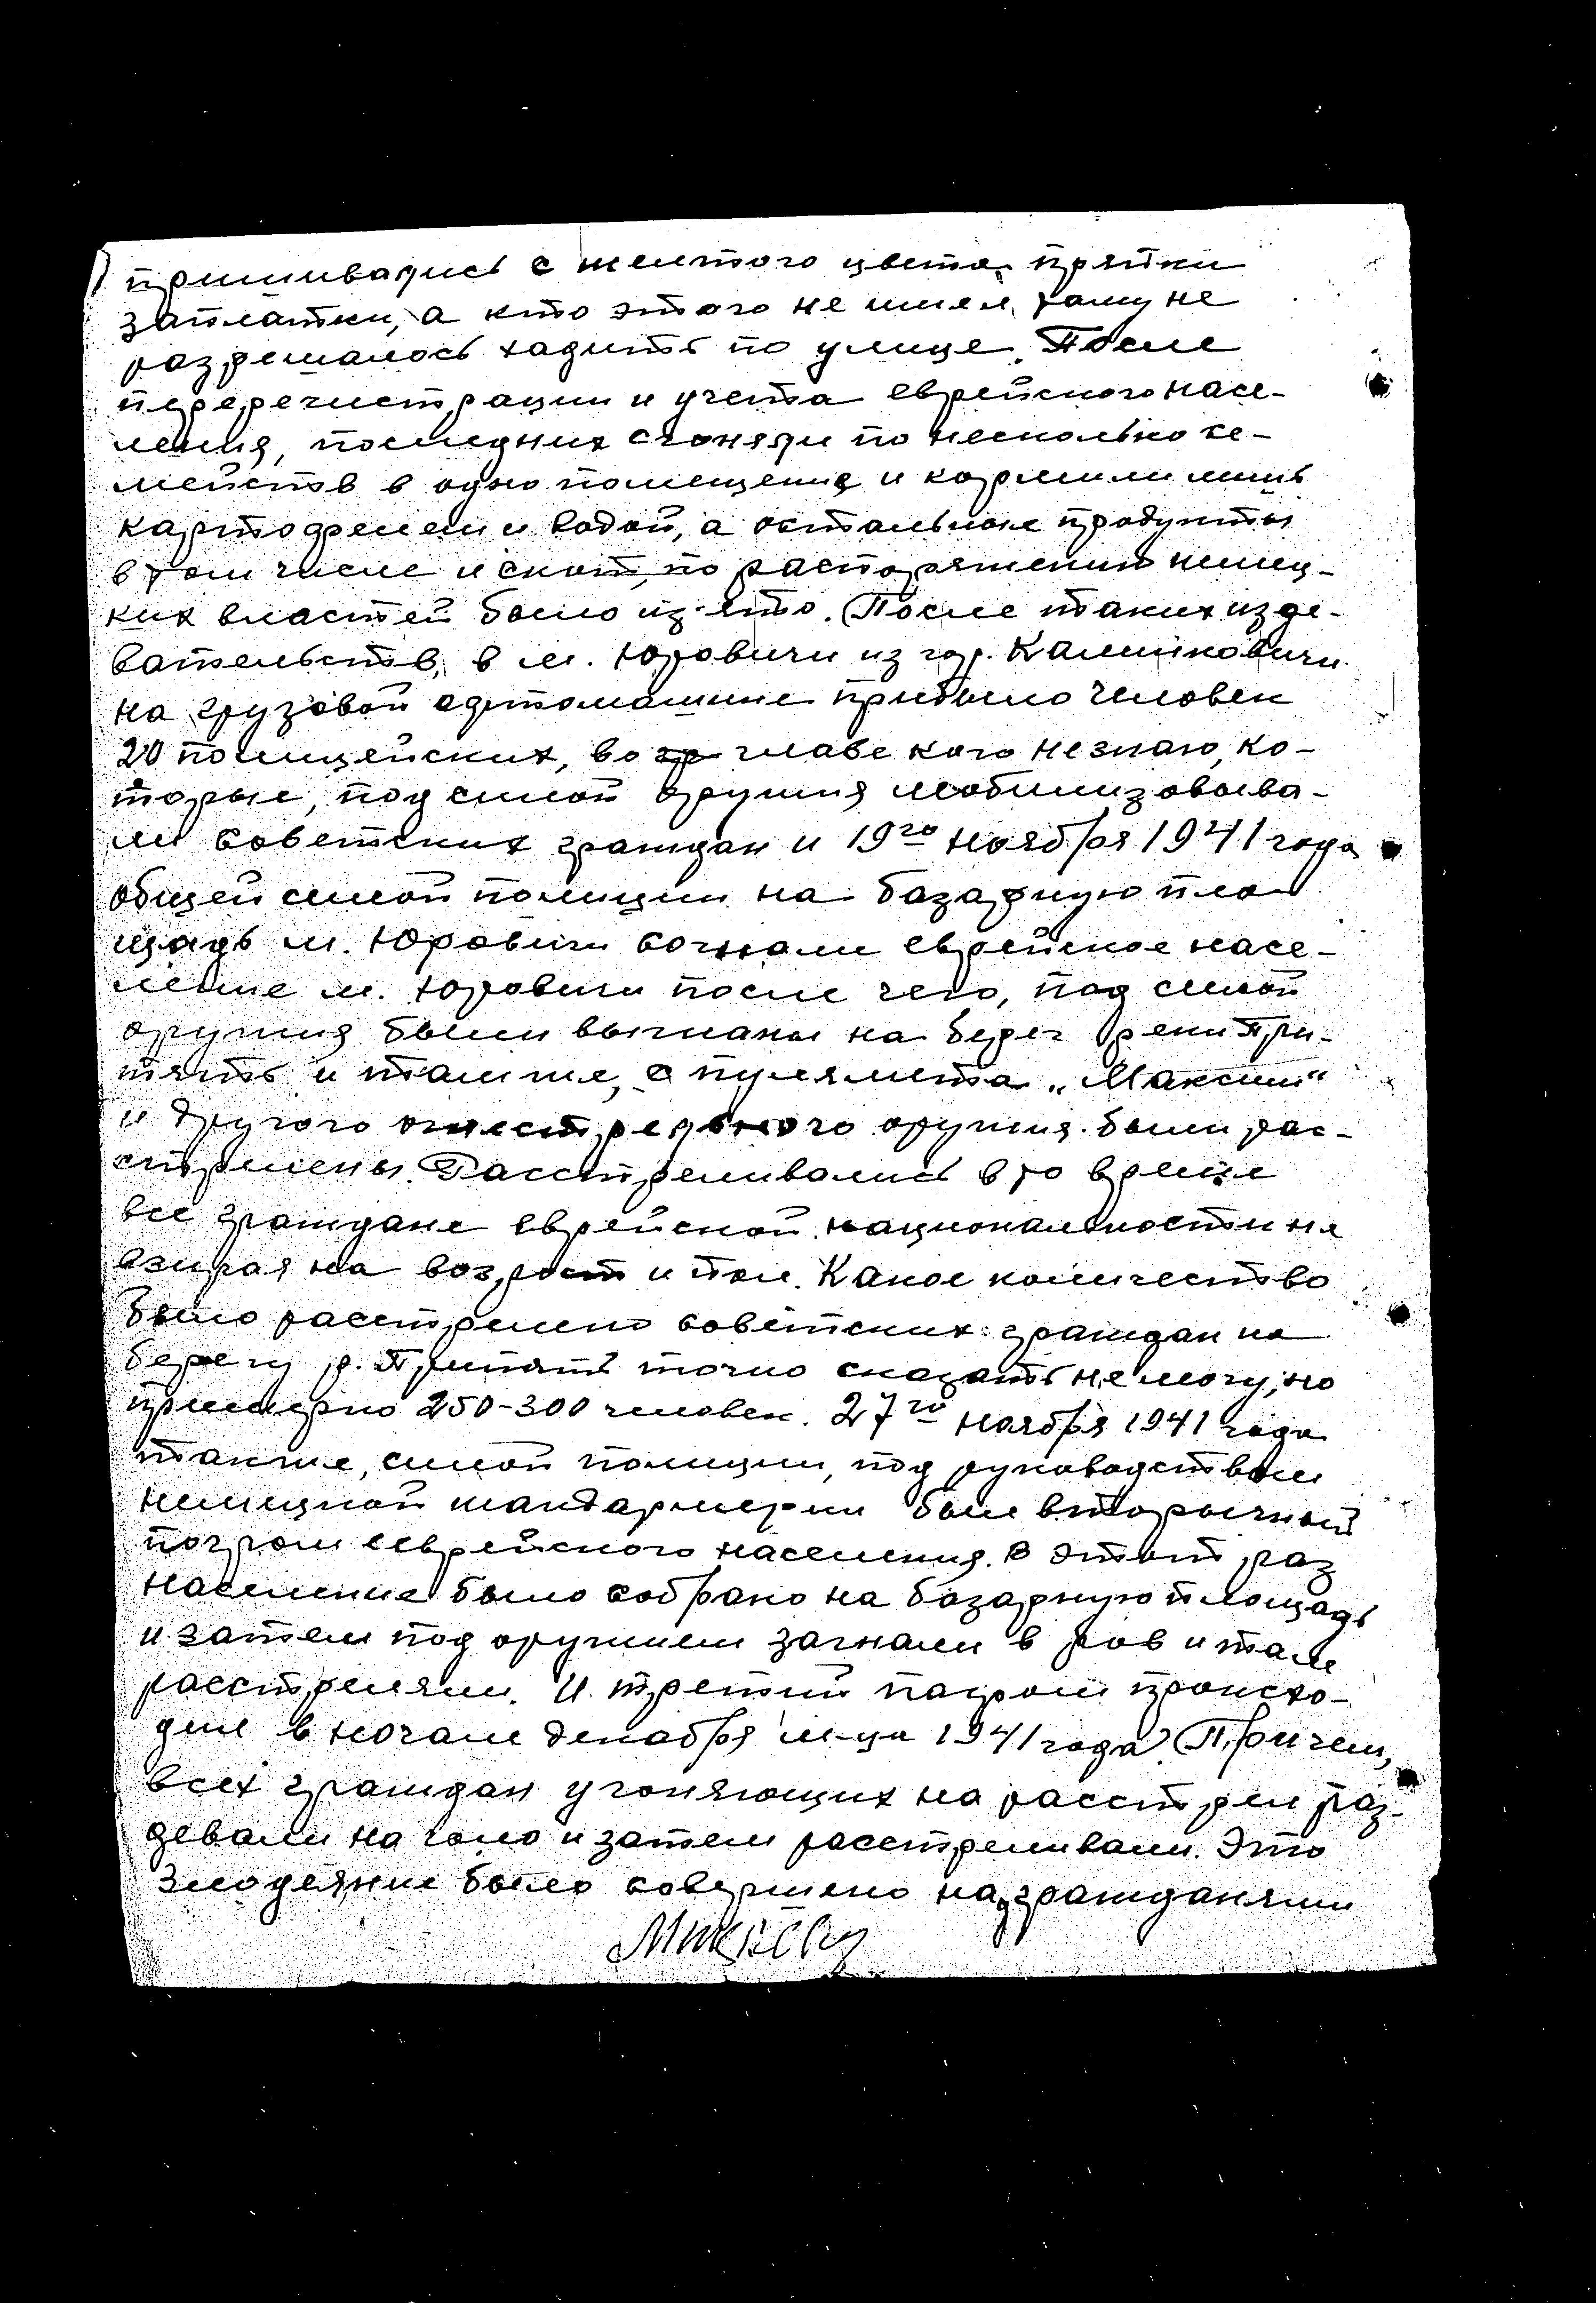 пришивались с желтого цвета тряпки
заплатки, а кто этого не имел, тому не
разрешалось хадить по улице. После
перерегистрации и учета еврейского насе-
ления, последних сгоняли по несколько се-
мейств в одно помещения и кормили лишь
картофелем и водой, а остальное продукты
в том числе и скот, по распоряжению немец-
ких властей было из'ято. После таких изде-
вательств, в м. Юровичи из гор. Калинковичи
на грузовой автомашине прибыло человек
20 полицейских, во главе кого не знаю, ко-
торые, под силой оружия мобилизовыва-
ли советских граждан и 19го ноября 1941 года
общей силой полиции на базарную пло
щадь м. Юровичи согнали еврейское насе-
ление м. Юровичи после чего, под силой
оружия были выгнаны на берег реки При-
пять и там же, с пулемета „Максим"
и другого огнестрельного оружия были рас-
стрелены. Расстреливались в то время
все граждане еврейской национальности не
взирая на возрост и пол. Какое количество
было расстрелено советских граждан на
берегу р. Припять точно сказать не могу, но
примерно 250-300 человек. 27го ноября 1941 года
также, силой полиции, под руководством
немецкой жандармерии был вторичный
погром еврейского населения. В этот раз
население было собрано на базарную площадь
и затем под оружием загнали в ров и там
расстреляли. И третий погром происхо-
дил в начале декабря м-ца 1941 года. Причем,
всех граждан угоняющих на расстрел раз-
девали на голо и затем расстреливали. Это
злодеяние было совершено над гражданами